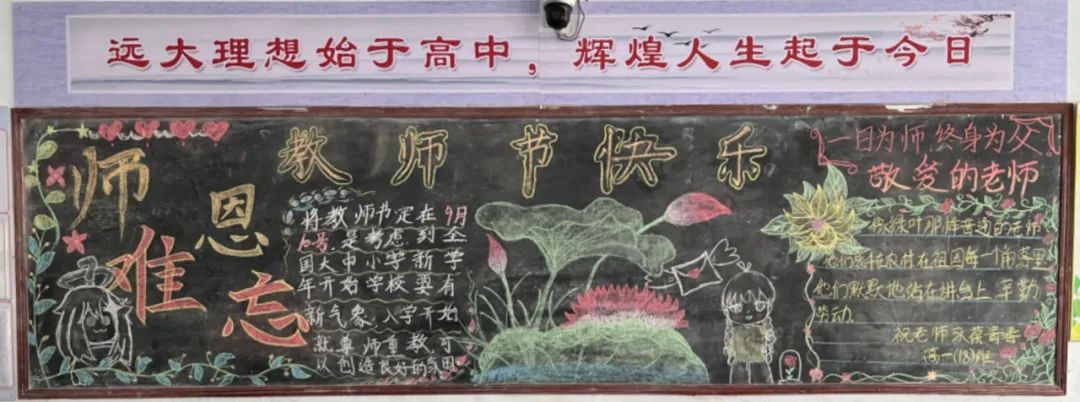 远大理想始于高中，辉煌人生起于今日
师恩难忘
教师节快乐
将教师节定在9月
10号是考虑到全
国大中小学新学
年开始学校要有
新气象入学开始
就尊师重教可
以创造良好的
一日为师,终身为父
敬爱的老师
那群普通的老师
他们 在农村在祖国每一个角落里
他们默默地站在讲台上 辛勤
劳动.
祝老师永葆青春
高一(18)班